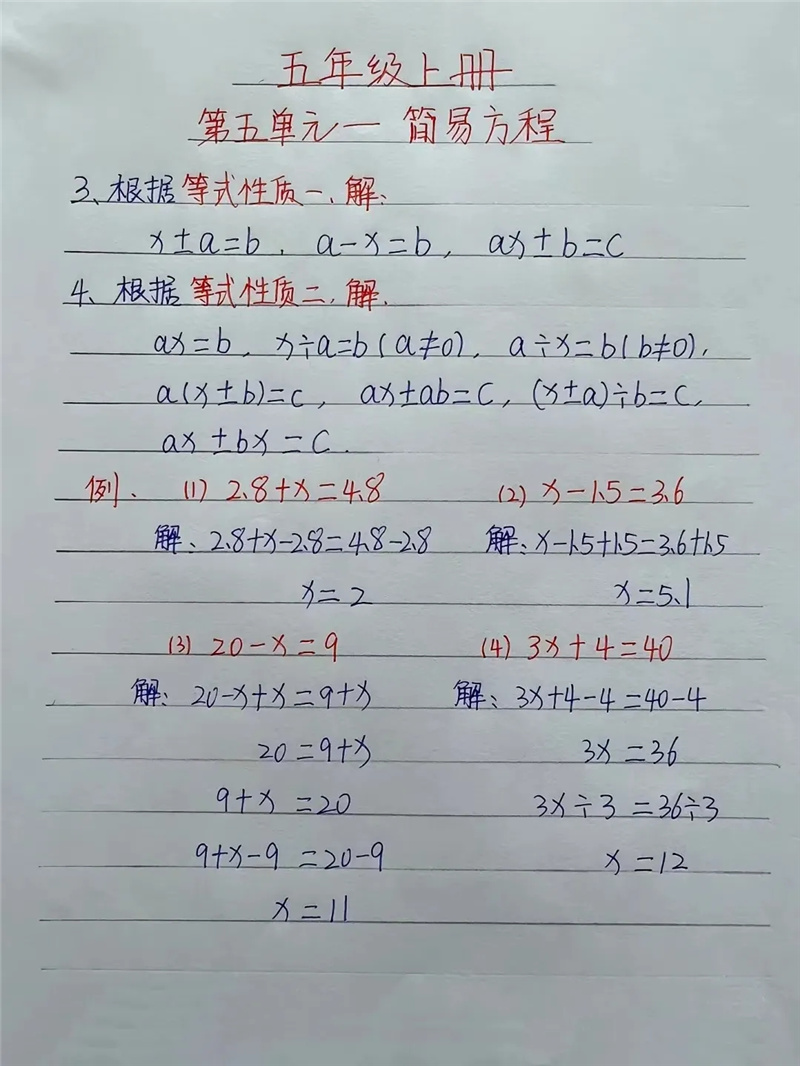 五年级上册
第五单元一 简易方程
3、根据等式性质一、解:
x±a=b、a-x=b, ax±b=c
4、根据等式性质二、解.
ax=b、x÷a=b(a≠0)、a÷x=b(b≠0),
a(x±b)=c, ax±ab=c, (x±a)÷b=c,
ax±bx=c.
例、 (1) 2.8+x=4.8 (2) x-1.5=3.6
解: 2.8+x-2.8=4.8-2.8 解: x-1.5+1.5=3.6+1.5
x=2 x=5.1
(3) 20-x=9 (4) 3x+4=40
解: 20-x+x=9+x 解: 3x+4-4=40-4
20=9+x 3x=36
9+x=20 3x÷3=36÷3
9+x-9=20-9 x=12
x=11